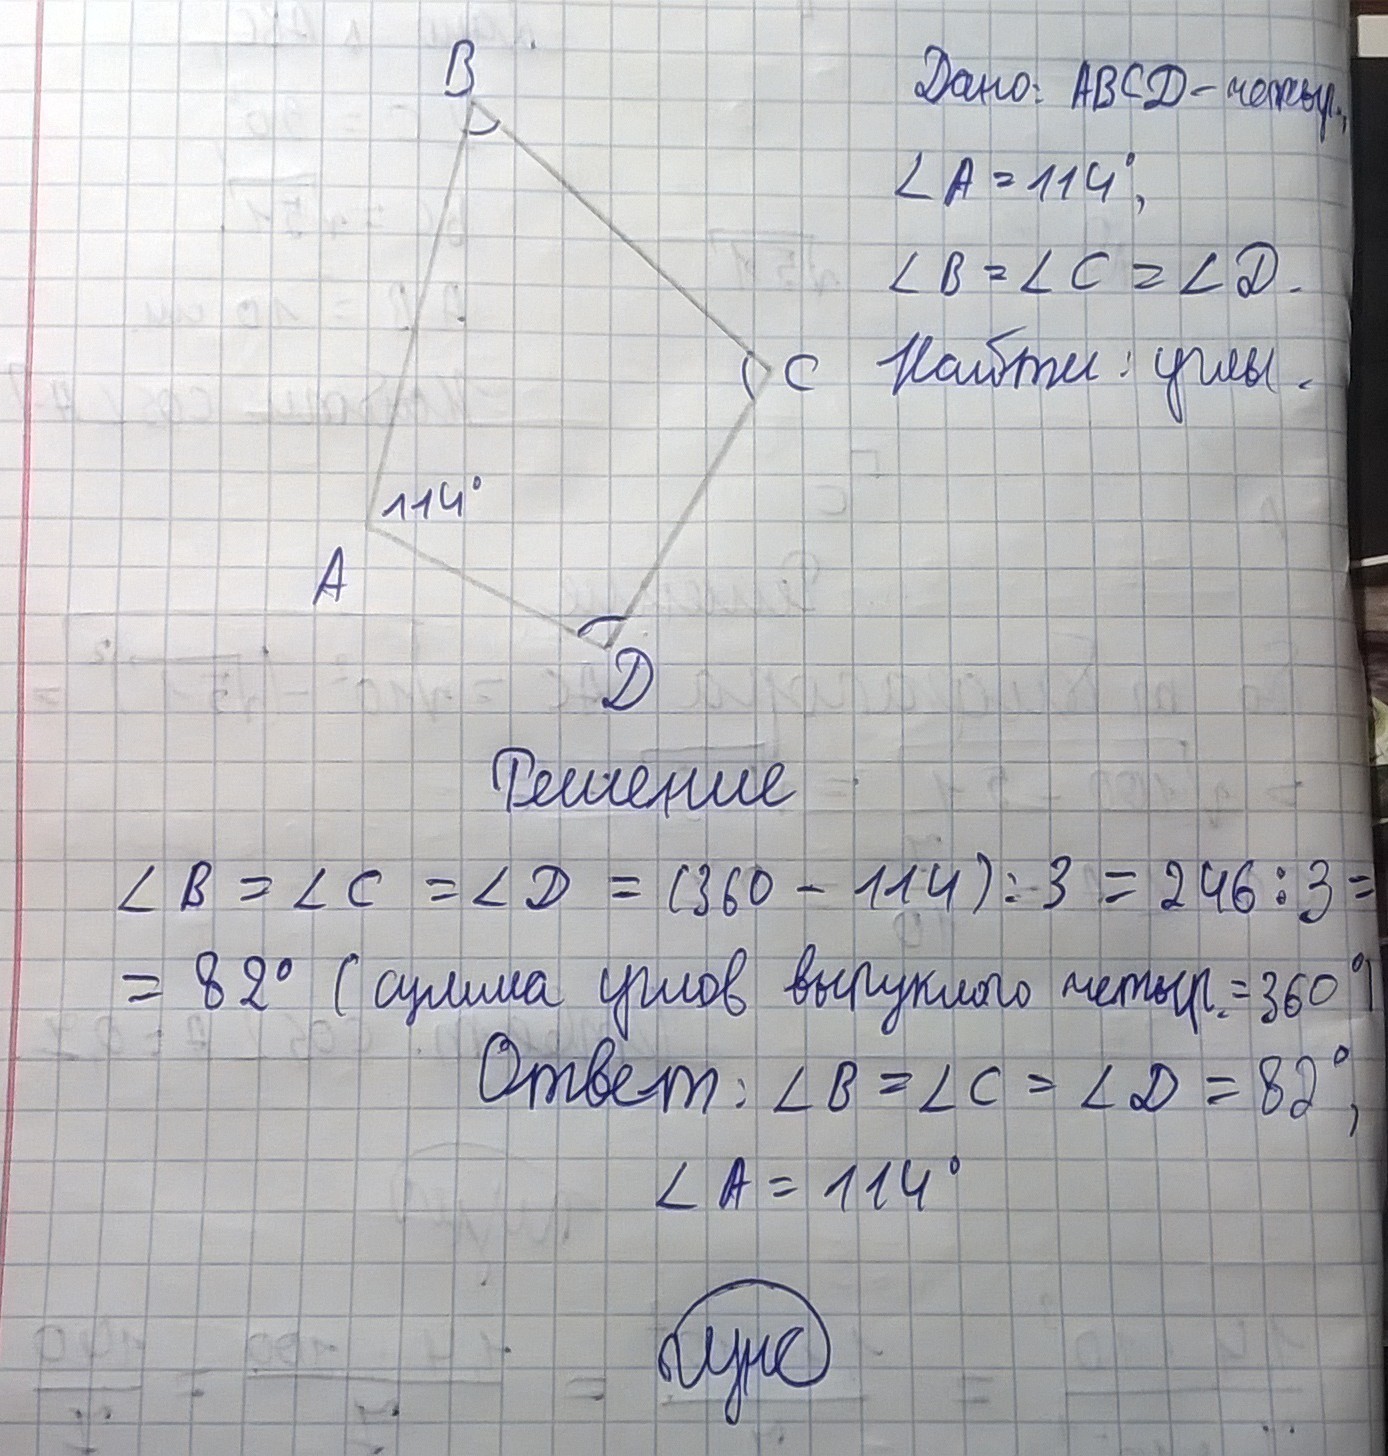 B
Дано: ABCD - четыр.,
∠A = 114°,
∠B = ∠C = ∠D.
C
Найти: углы.
114°
A
D
Решение
∠B = ∠C = ∠D = (360 - 114) : 3 = 246 : 3 =
= 82° (сумма углов выпуклого четыр. = 360°)
Ответ: ∠B = ∠C = ∠D = 82°,
∠A = 114°